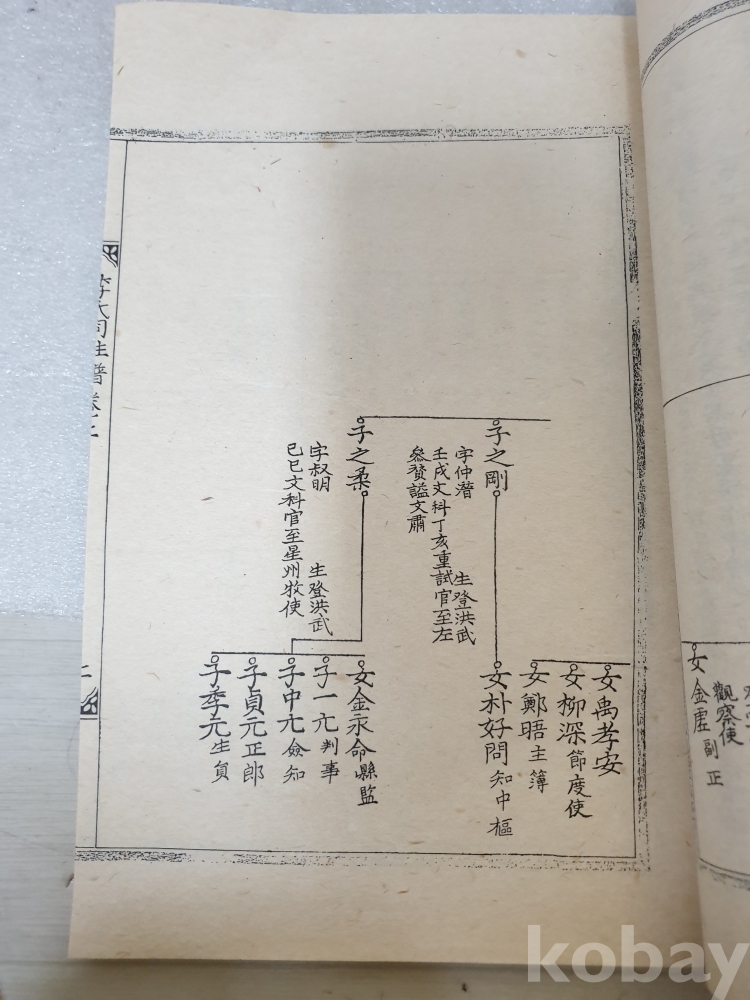 子之剛
字仲潛 生登洪武
壬戌文科丁亥重試官至左
參贊謚文肅
子之柔
字叔明 生登洪武
己巳文科官至星州牧使
女禹孝安
女柳深 節度使
女鄭晤 主簿
女朴好問 知中樞
女金永命 縣監
子一元 判事
子中元 僉知
子貞元 正郎
子季元 生員
李氏同姓譜 卷之二
二
女金虛 副正
觀察使
kobay